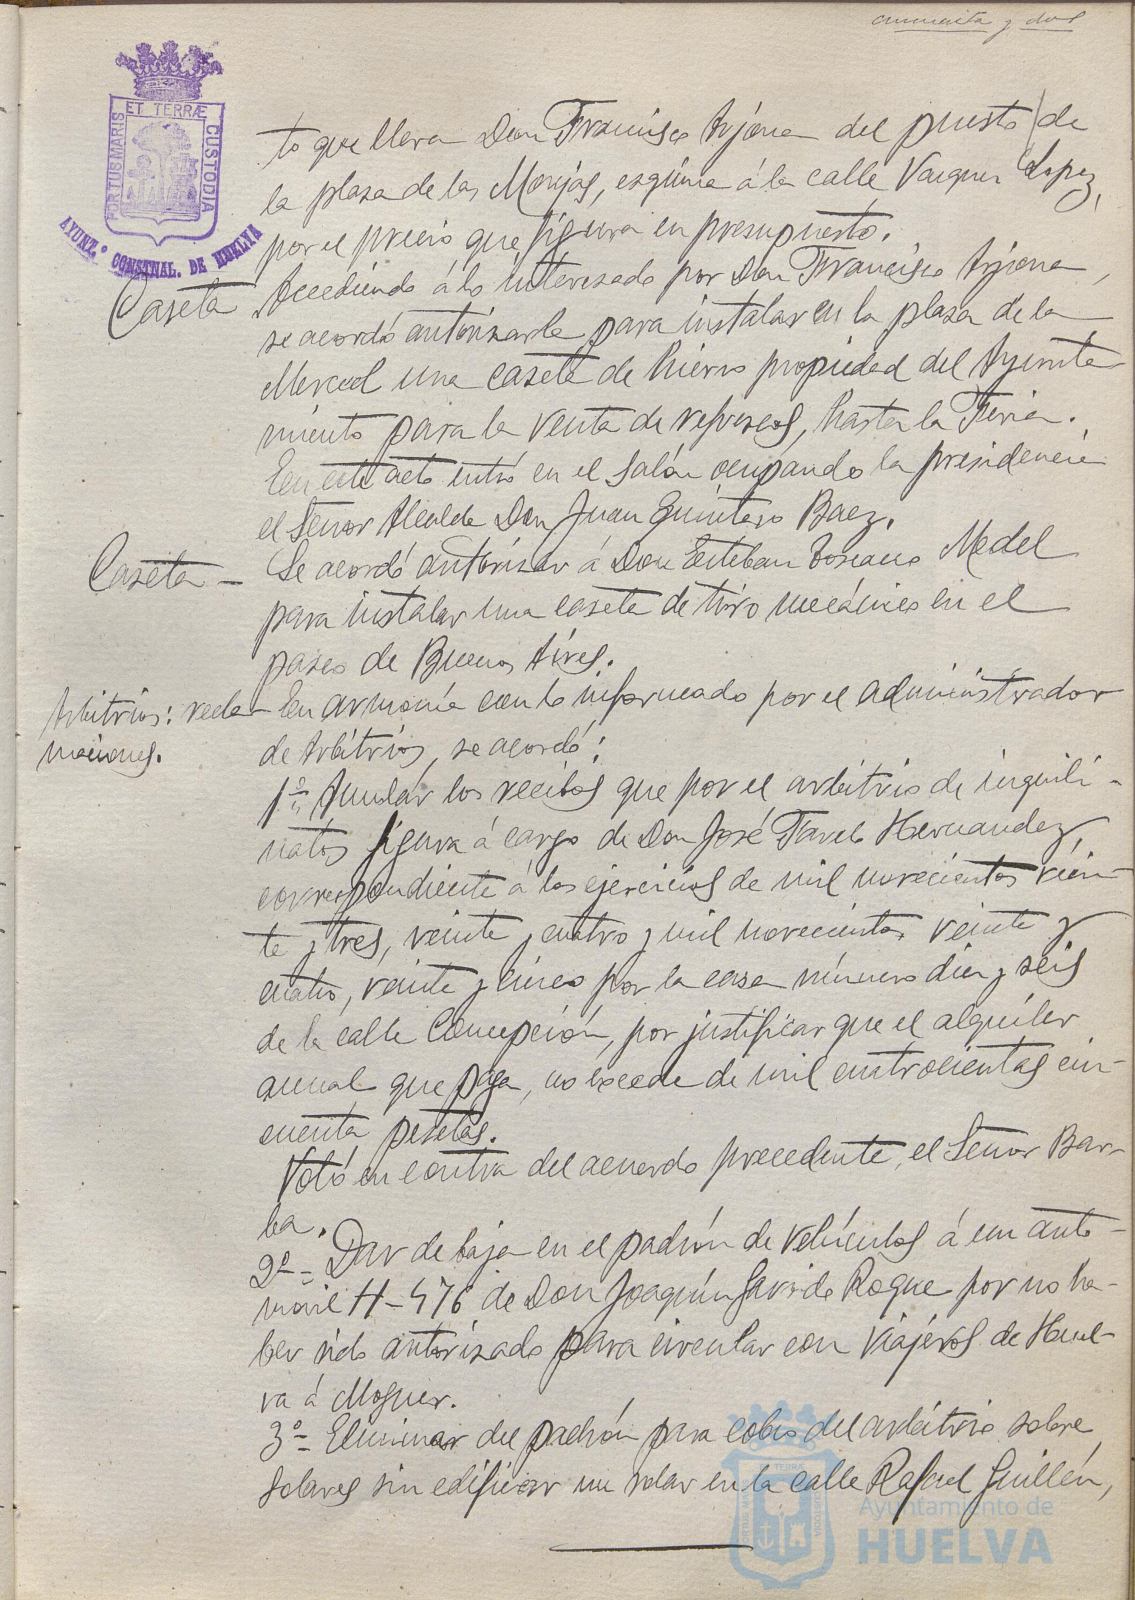 cincuenta y dos
PORTUS MARIS ET TERRÆ CUSTODIA
AYUNT.º CONSTNAL. DE HUELVA
to que lleva Don Francisco Arjona del puesto de
la plaza de las Monjas, esquina á la calle Vazquez Lopez,
por el precio que figura en presupuesto.
Caseta. Accediendo á lo interesado por Don Francisco Arjona,
se acordó autorizarle para instalar en la plaza de la
Merced una caseta de hierro propiedad del Ayunta-
miento para la venta de refrescos, hasta la Feria.
En este acto entró en el salón ocupando la presidencia
el Señor Alcalde Don Juan Quintero Baez.
Caseta - Se acordó autorizar á Don Esteban Toscano Medel
para instalar una caseta de tiro mecánico en el
paseo de Buenos Aires.
Arbitrios: recla-
maciones.
En armonía con lo informado por el administrador
de Arbitrios, se acordó:
1º= Anular los recibos que por el arbitrio de inquili-
natos figura á cargo de Don José Hernandez,
correspondiente á los ejercicios de mil novecientos vein-
te y tres, veinte y cuatro y mil novecientos veinte y
cuatro, veinte y cinco por la casa número diez y seis
de la calle Concepción, por justificar que el alquiler
anual que paga, no excede de mil cuatrocientas cin-
cuenta pesetas.
Votó en contra del acuerdo precedente, el Señor Bar-
ba.
2º= Dar de baja en el padrón de vehículos á un auto-
movil H-476 de Don Joaquín Roque por no ha-
ber sido autorizado para circular con viajeros de Huel-
va á Moguer.
3º= Eliminar del padrón para cobro del arbitrio sobre
solares sin edificar un solar en la calle Rafael Guillén,
Ayuntamiento de
HUELVA